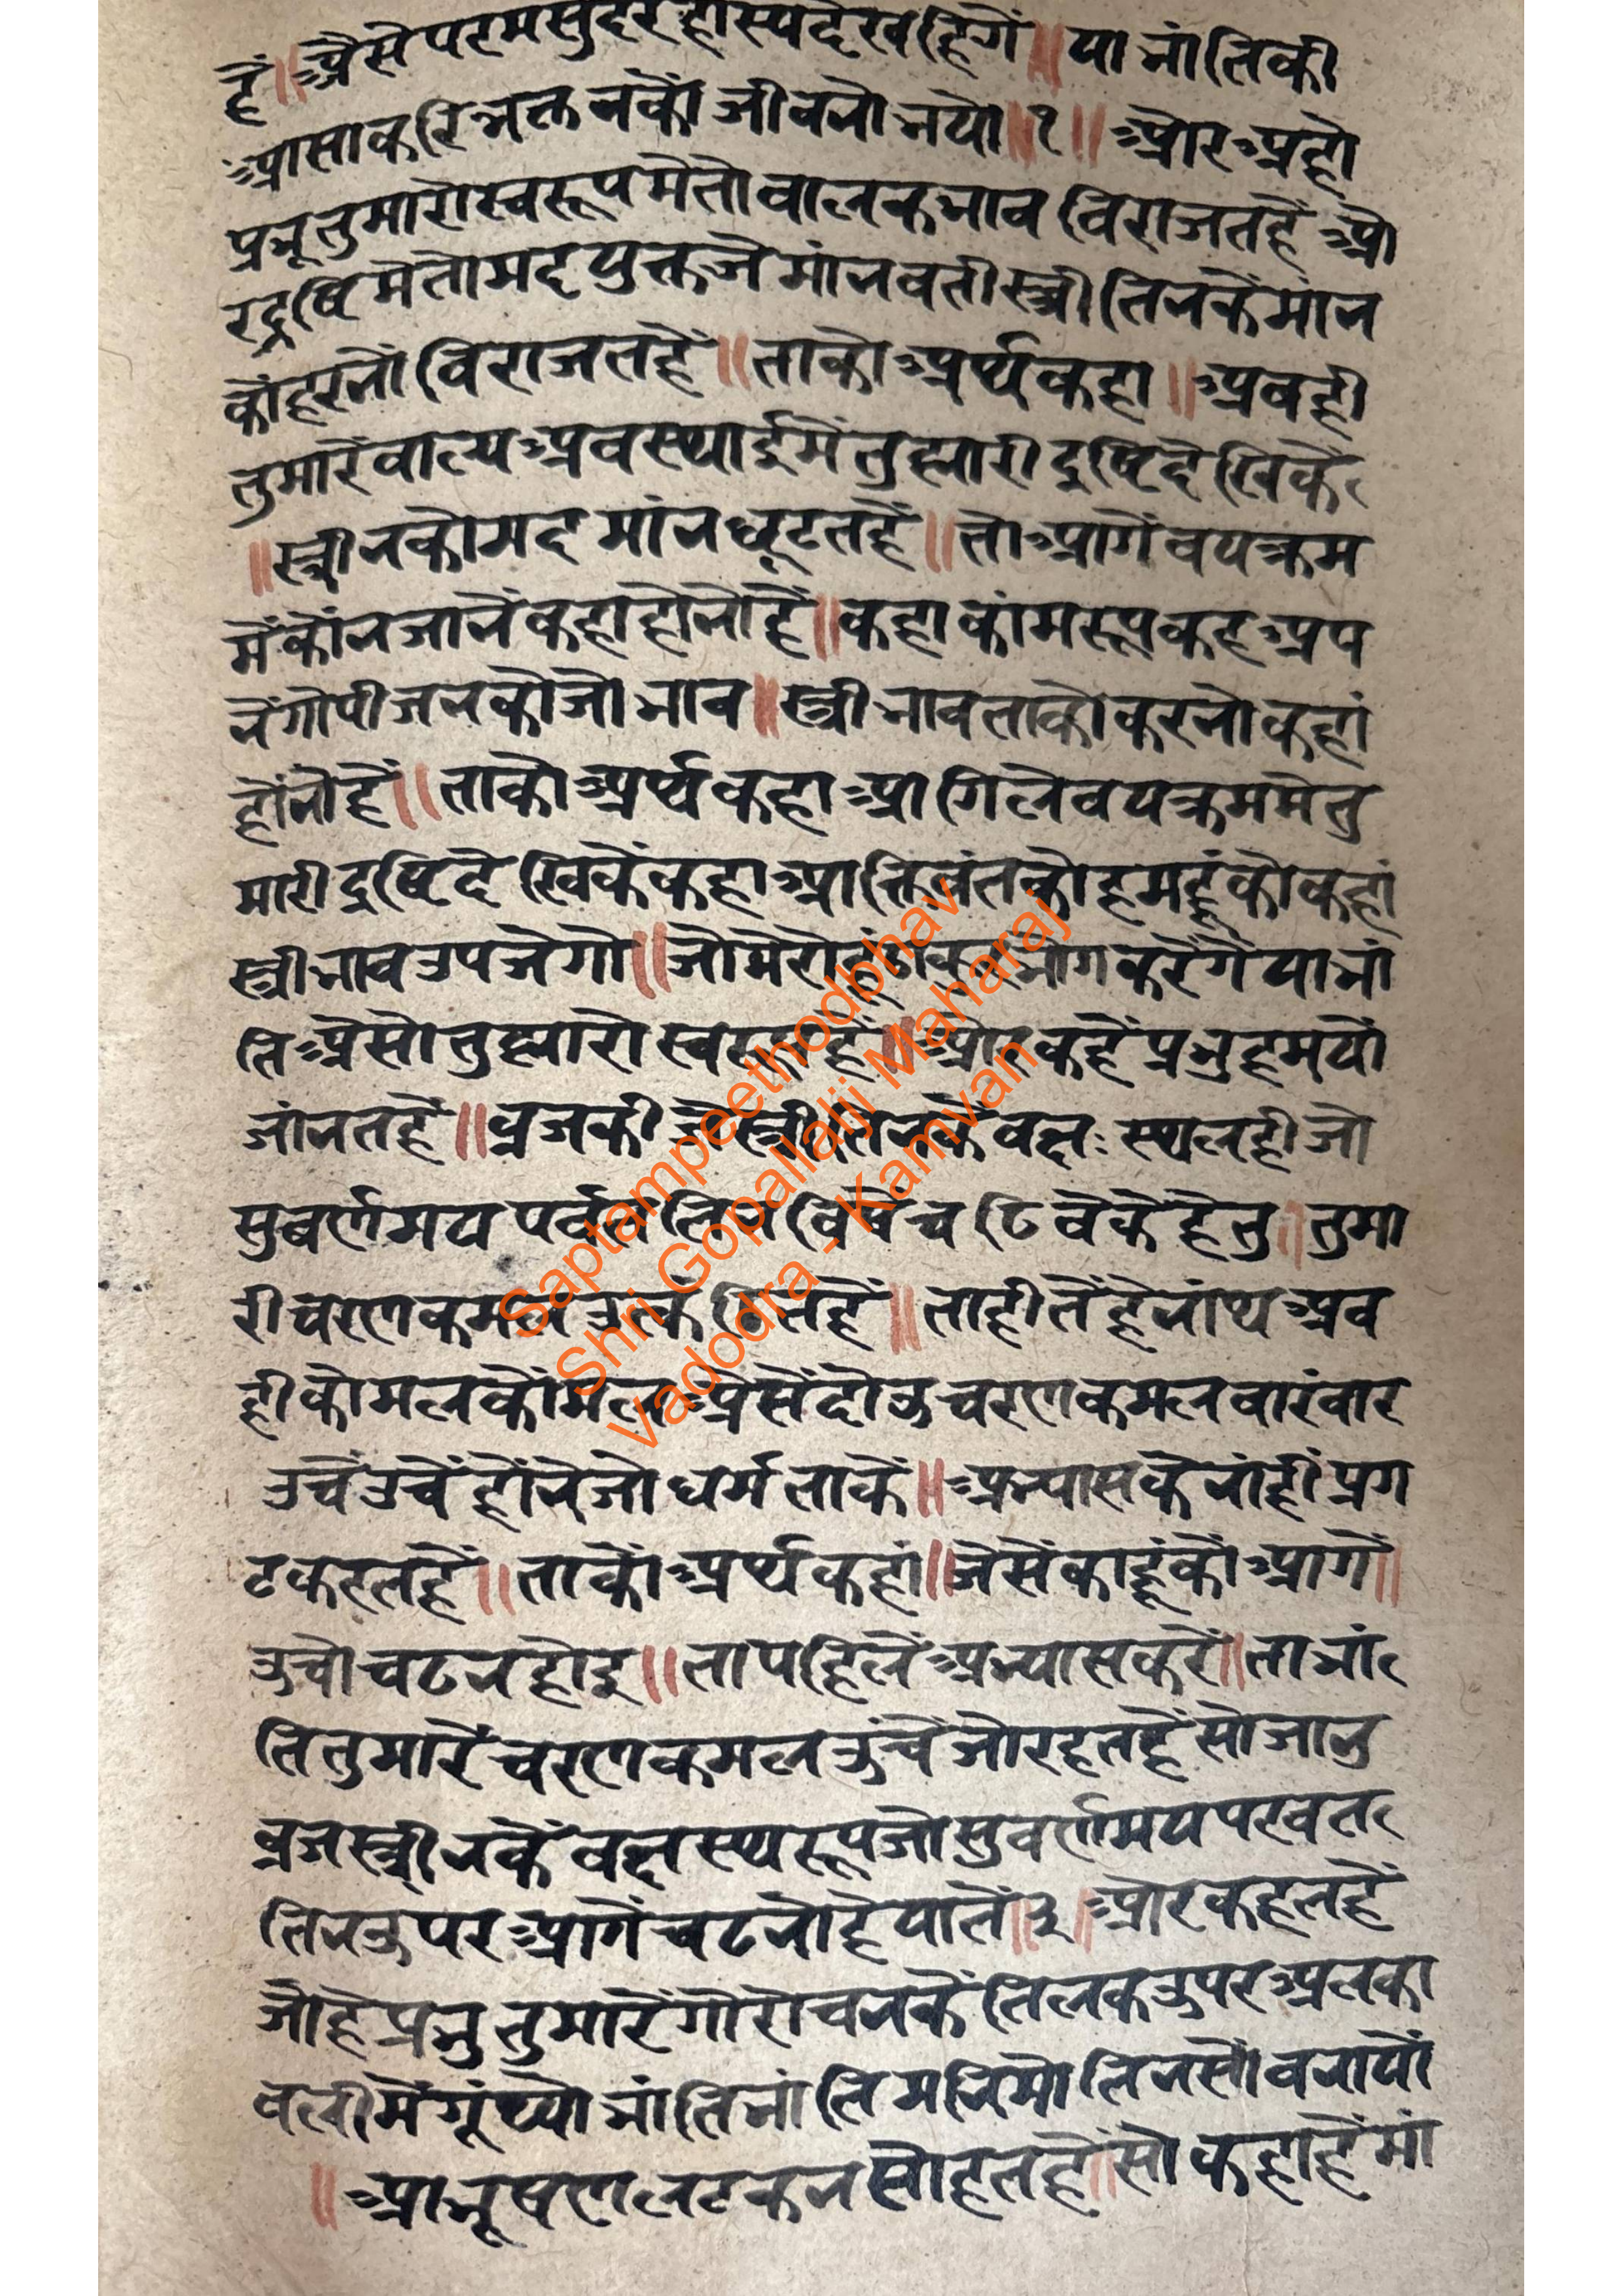 हैं॥ अैसे परमसुंदर हास्य देखहिगें॥ या भांतिकी
आसाकरि भक्तनकों जीवनो भयो॥१॥ और अहो
प्रभू तुमारो स्वरूपमे तो बालकभाव विराजतहैं औ
र द्रष्टिमे तो मदयुक्त जे मांनवती स्त्री तिनकें मांन
कों हरनों विराजतहें॥ ताको अर्थ कहा॥ अबही
तुमारें बाल्य अवस्थाईमें तुह्मारी द्रष्टि देखिकें
॥ स्त्रीनको मद मांन छूटतहें॥ तो आगें वयक्रम
में कोंन जानें कहा होनो हें॥ कहा कांमरूप कर अप
नें गोपीजनको जो भाव॥ स्त्रीभाव ताको करनो कहां
होंनो हें॥ ताको अर्थ कहा आगिले वयक्रममे तु
मारी द्रष्टि देखिकें कहा आक्तिवंतको हमहूंको कहां
स्त्रीभाव उपजेगो॥ जो मेरो हूं भोग करेंगें या भां
ति अैसो तुह्मारो स्वरूप हें॥ और कहें प्रभु हम यों
जांनतहें॥ व्रजकी जे स्त्री तिनकें वक्षःस्थलही जो
सुवर्णमय पर्वत तिन विषें चढिवेके हेतु॥ तुमा
री चरणकमल उत्कंठितहें॥ ताहीतें हे नांथ अब
ही कोमल कोंमल अैसें दोऊ चरणकमल वारंवार
उचें उचें होंने जो धर्म ताकें॥ अभ्यासकें नांहीं प्रग
ट करतहें॥ ताकों अर्थ कहां॥ जेसें काहूंकों आगें॥
उचो चढन होइ॥ ता पहिलें अभ्यास करें॥ ता भां
ति तुमारें चरणकमल उंचें जो रहतहें सो जानु
व्रजस्त्रीनकें वक्षस्थरूप जो सुवर्णमय परवत
तिन ऊपर आगें चढनो हें यातें॥३॥ और कहतहें
जो हे प्रभु तुमारें गोरोचनकें तिलक उपर अलका
वलीमें गूंथ्यो भांति भांति मनिमोतिनसों बनायों
॥ आभूषण लटकन सोहतहें॥ सो कहा हें मां